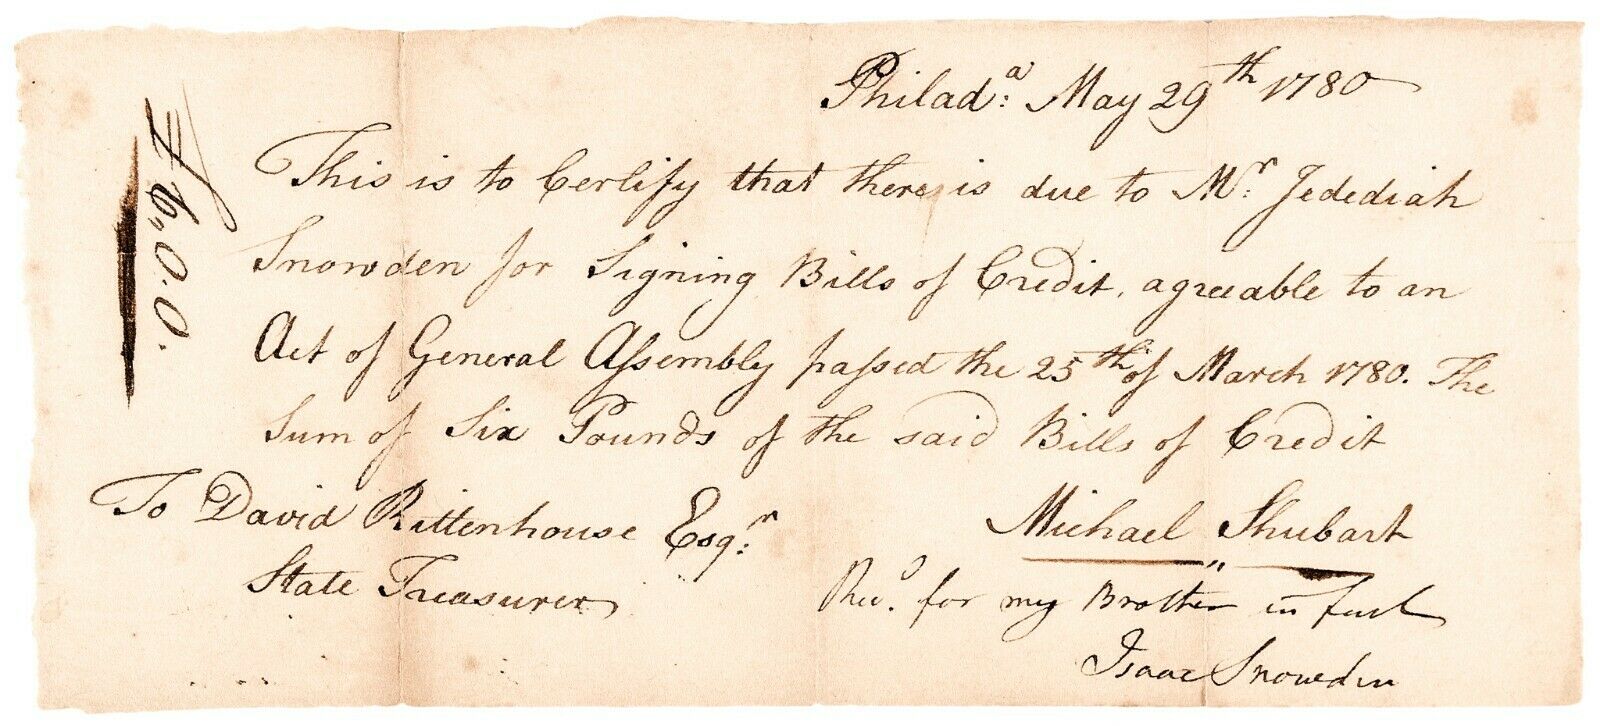 Philad:a May 29th 1780
This is to Certify that there is due to Mr: Jedediah
Snowden for Signing Bills of Credit, agreeable to an
Act of General Assembly passed the 25th of March 1780. The
Sum of Six Pounds of the said Bills of Credit
To David Rittenhouse Esqr:
State Treasurer
Michael Shubart
Recd. for my Brother in full
Isaac Snowden
£6,,0.0.